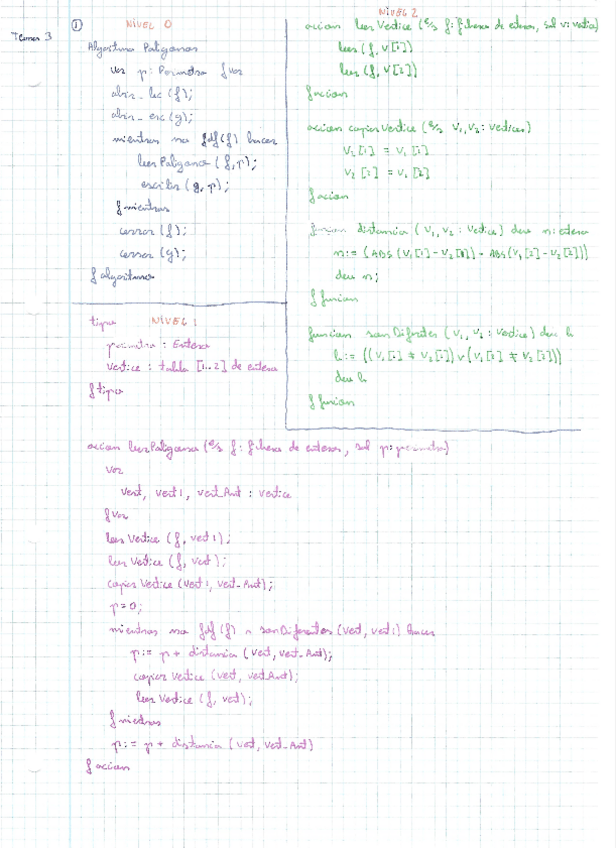 Temas 3
①
NIVEL 0
Algoritmo Poligonos
var p: Perimetro fvar
abrir_lec (f);
abrir_esc (g);
mientras no fdf(f) hacer
leerPoligono (f,p);
escribir (g,p);
fmientras
cerrar (f);
cerrar (g);
falgoritmo
tipo NIVEL 1
perimetro : Entero
vertice : tabla [1..2] de entero
ftipo
NIVEL 2
accion leer Vertice (e/s f: fichero de enteros, sal v: vertice)
leer (f, v[1])
leer (f, v[2])
faccion
accion copiar Vertice (e/s v₁, v₂ : vertices)
v₂ [1] = v₁ [1]
v₂ [2] = v₁ [2]
faccion
funcion distancia (v₁, v₂ : vertice) dev n: entero
dev n;
ffuncion
funcion sonDiferentes (v₁, v₂ : vertice) dev b
dev b
ffuncion
accion leerPoligono (e/s f: fichero de enteros, sal p: perimetro)
var
vert, vert1, vert_Ant : vertice
fvar
leer Vertice (f, vert1);
leer Vertice (f, vert);
copiar Vertice (vert1, vert_Ant);
p=0;
mientras no fdf(f) ∧ sonDiferentes (vert, vert1) hacer
p:= p + distancia (vert, vert_Ant);
copiar Vertice (vert, vert_Ant);
leer Vertice (f, vert);
fmientras
p:= p + distancia (vert, vert_Ant)
faccion